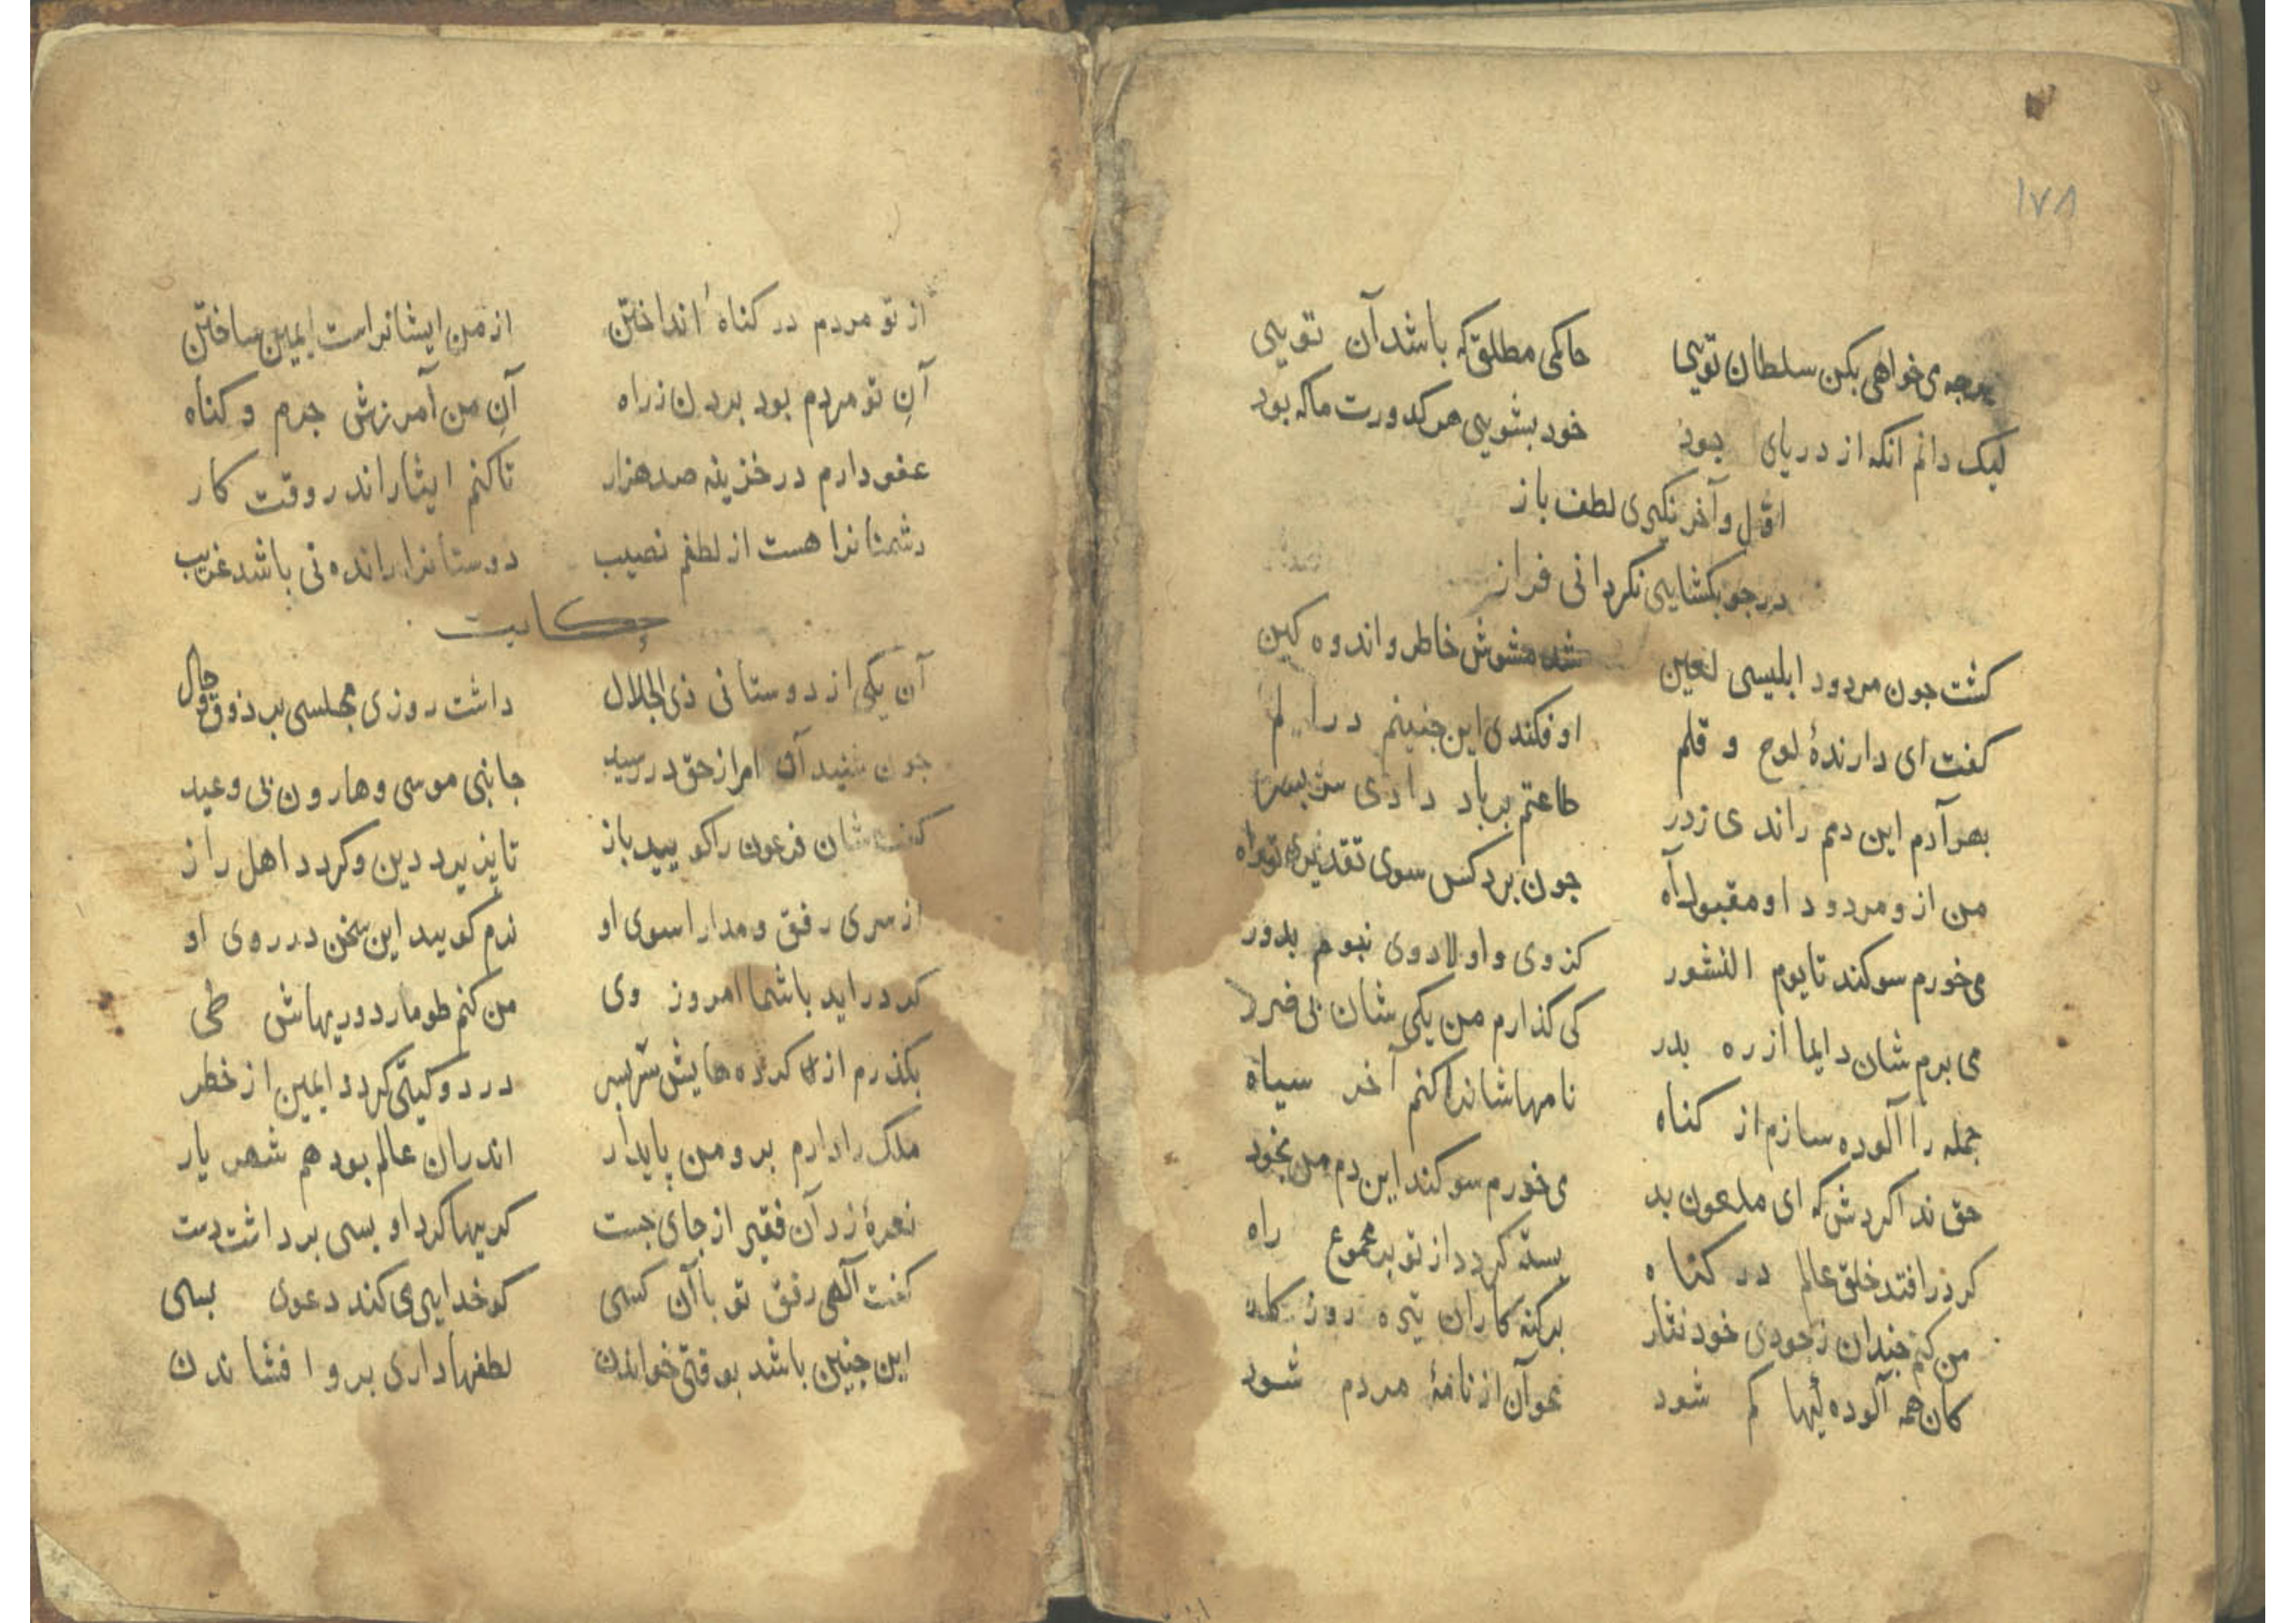 ١٧٨
هرجه می خواهی بکن سلطان تویی حاکمی مطلق که باشد آن تویی
لیک دانم انکه از دریای جود خود بشویی هر کدورت ماکه بود
اوّل و آخر نکیری لطف باز
در جو بکشایی نکردانی فراز
کشت جون مردود ابلیسی لعین شد مشوش خاطر و اندوه کین
کفت ای دارندهٔ لوح و قلم او فکندی این جنینم در
بهر آدم این دمم راندی زدر طاعتم برباد دادی سر بسر
من ازو مردود او مقبول راه جون برد کس سوی تقدیر تو راه
می خورم سوکند تا یوم النشور کز وی و اولاد وی نبوم بدور
می برم شان دایما از ره بدر کی کذارم من یکی شان بی ضرر
جمله را آلوده سازم از کناه نامهاشانرا کنم آخر سیاه
حق ندا کردش که ای ملعون بد می خورم سوکند این دم من بخود
کر درافتد خلق عالم در کناه بسته کردد از تو بر مجموع راه
من کنم جندان زجودی خود نثار بر کنه کاران تیره روز کار
کان همه آلوده ئیها کم شود محو آن از نامهٔ مردم شود
از تو مردم در کناه انداختن از من ایشانراست ایمین ساختن
آنِ تو مردم بود بردن زراه آنِ من آمرزش جرم و کناه
عفو دارم در خزینه صد هزار تا کنم ایثار اندر وقت کار
دشمنانرا هست از لطفم نصیب دوستانرا رانده نی باشد غریب
حکایت
آن یکی از دوستانی ذی الجلال داشت روزی مجلسی بب ذوق و حال
جون شنید آن امر از حق در رسید جانبی موسی و هارون بی وعید
کفت شان فرعون را کویید باز تا پذیرد دین و کردد اهل راز
از سری رفق و مدارا سوی او نرم کویید این سخن در روی او
کر در اید با شما امروز وی من کنم طومار دوریهاش طی
بکذرم از کرده هایش سر بسر در دو کیتی کردد ایمین از خطر
ملک را دارم برو من پایدار اندران عالم بود هم شهریار
نعرهٔ زد آن فقیر از جای جست کریها کرد او بسی برداشت دست
کفت الهی رفق تو با آن کسی کو خدایی می کند دعوی بسی
این جنین باشد بوقتی خواندن لطفها داری برو افشاندن